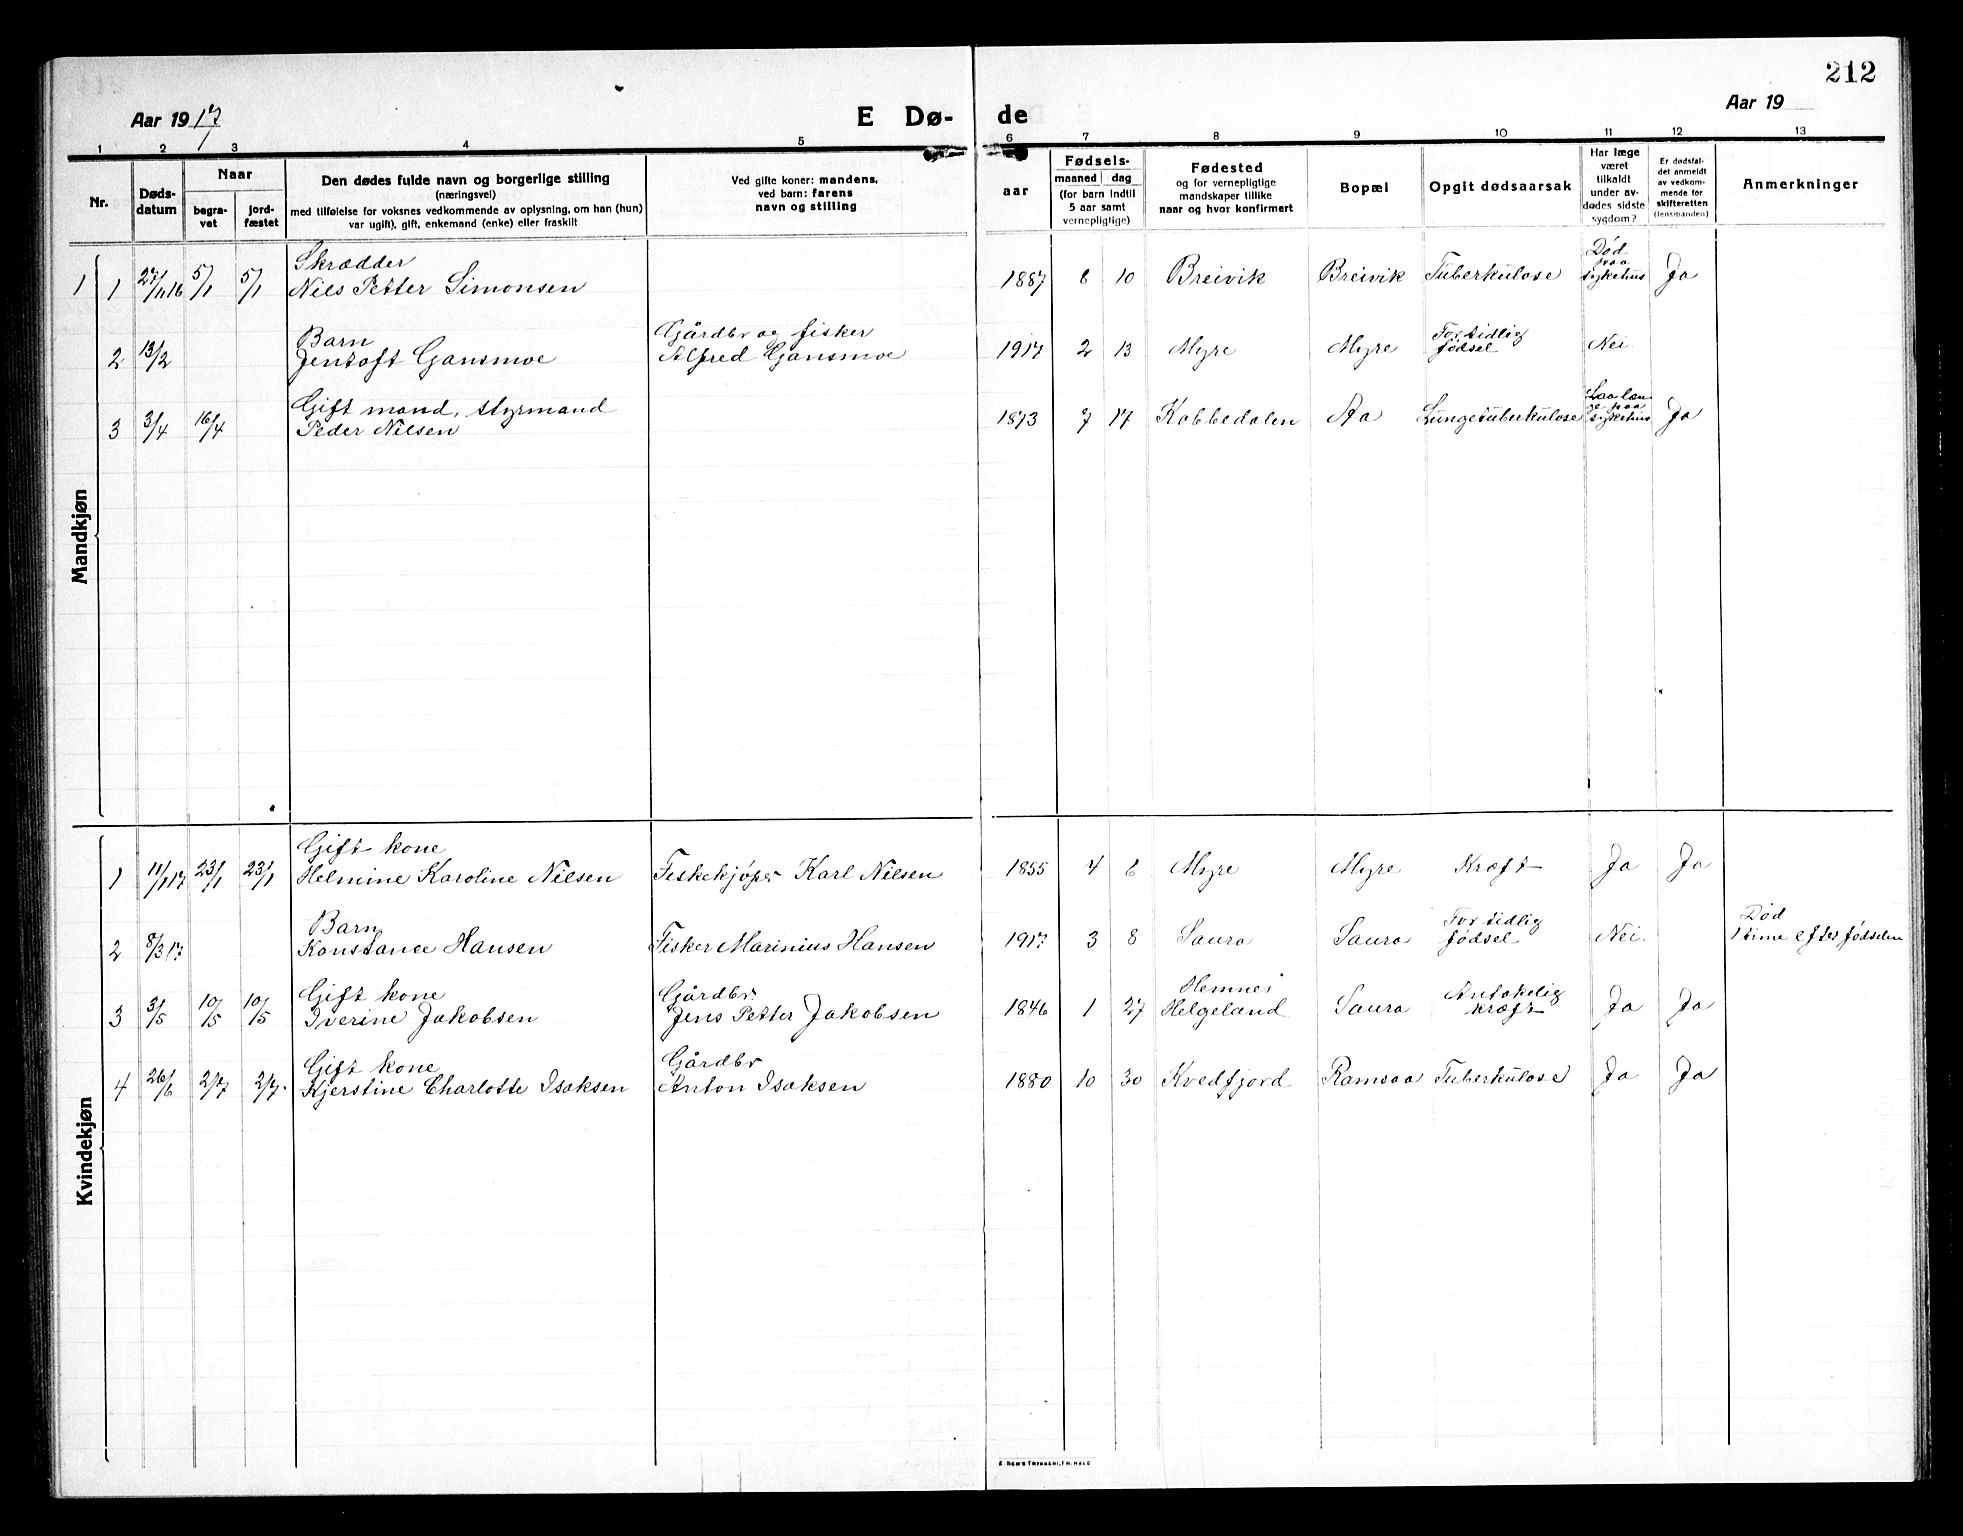 212
Aar 1917
E Dø-
de
Aar 19
1 2 3 4 5 6 7 8 9 10 11 12 13
Nr.
Døds-
datum
Naar
begra-
vet
jord-
fæstet
Den dødes fulde navn og borgerlige stilling
(næringsvei)
med tilføielse for voksnes vedkommende av oplysning, om han (hun)
var ugift), gift, enkemand (enke) eller fraskilt
Ved gifte koner: mandens,
ved barn: farens
navn og stilling
aar
Fødsels-
maaned dag
(for barn indtil
5 aar samt
vernepligtige)
Fødested
og for vernepligtige
mandskaper tillike
naar og hvor konfirmert
Bopæl
Opgit dødsaarsak
Har læge
været
tilkaldt
under av-
dødes sidste
sygdom?
Er dødsfal-
det anmeldt
av vedkom-
mende for
skifteretten
(lensmanden)
Anmerkninger
Mandkjøn
Skrædder Død paa
1 1 27/11 16 5/1 5/1 Nils Petter Simonsen 1887 8 10 Breivik Breivik Tuberkulose sykehus Ja
Barn Gårdbr og fisker For tidlig
2 13/2 Jentoft Gansmoe Alfred Gansmoe 1917 2 13 Myre Myre fødsel Nei
Gift mand, styrmand Laa læn
ge paa
3 3/4 16/4 Peder Nilsen 1873 7 17 Kobbedalen Aa Lungetuberkulose sykehus Ja
Kvindekjøn
Gift kone
1 11/1 17 23/1 23/1 Helmine Karoline Nilsen Fiskekjøper Karl Nilsen 1855 4 6 Myre Myre Kræft Ja Ja
Barn For tidlig Død
2 8/3 17 Konstance Hansen Fisker Marinius Hansen 1917 3 8 Saura Saura fødsel Nei. 1 time efter fødselen
Gift kone Gårdbr. Hemnes Antakelig
3 3/5 10/5 10/5 Iverine Jakobsen Jens Petter Jakobsen 1846 1 27 Helgeland Saura kræft Ja Ja
Gift kone Gårdbr
4 26/6 2/7 2/7. Kjerstine Charlotte Isaksen Anton Isaksen 1880 10 30 Kvedfjord Ramsaa Tuberkulose Ja Ja